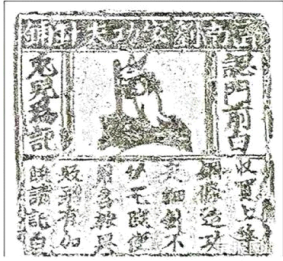 濟南劉家功夫針鋪
認門前白
兔兒為記
收買上等
鋼條造功
夫細針不
販別有加
饒請記白